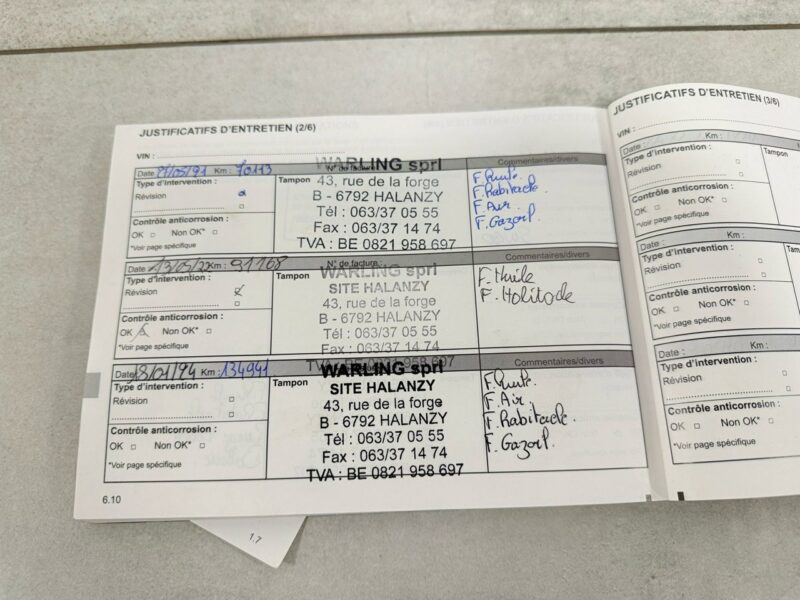 JUSTIFICATIFS D'ENTRETIEN (2/6)
VIN :
Date Km : 70113
N° de facture
Commentaires/divers
Type d'intervention :
Révision
Contrôle anticorrosion :
OK Non OK*
*Voir page spécifique
Tampon
WARLING sprl
43, rue de la forge
B - 6792 HALANZY
Tél : 063/37 05 55
Fax : 063/37 14 74
TVA : BE 0821 958 697
F. Huile.
F. Habitacle.
F. Air
F. Gazoil.
Date 13/05/22 Km : 91168
N° de facture
Commentaires/divers
Type d'intervention :
Révision
Contrôle anticorrosion :
OK Non OK*
*Voir page spécifique
Tampon
WARLING sprl
SITE HALANZY
43, rue de la forge
B - 6792 HALANZY
Tél : 063/37 05 55
Fax : 063/37 14 74
TVA : BE 0821 958 697
F. Huile
F.
Date 18/01/24 Km : 134941
Commentaires/divers
Type d'intervention :
Révision
Contrôle anticorrosion :
OK Non OK*
*Voir page spécifique
Tampon
WARLING sprl
SITE HALANZY
43, rue de la forge
B - 6792 HALANZY
Tél : 063/37 05 55
Fax : 063/37 14 74
TVA : BE 0821 958 697
F. Huile.
F. Air
F. Habitacle.
F. Gazoil.
6.10
1.7
JUSTIFICATIFS D'ENTRETIEN (3/6)
VIN :
Date : Km :
Type d'intervention :
Révision
Contrôle anticorrosion :
OK Non OK*
*Voir page spécifique
Tampon
Date : Km :
Type d'intervention :
Révision
Contrôle anticorrosion :
OK Non OK*
*Voir page spécifique
Tampon
Date : Km :
Type d'intervention :
Révision
Contrôle anticorrosion :
OK Non OK*
*Voir page spécifique
Tampon